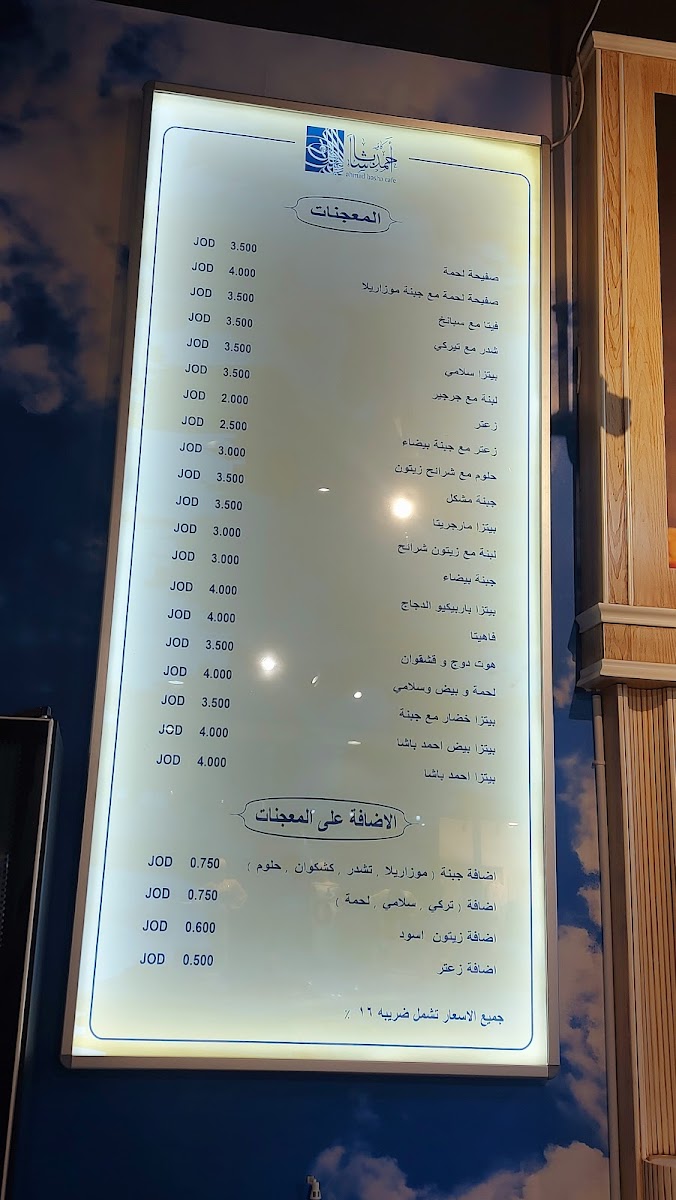 أحمد باشا
ahmad basha cafe
المعجنات
صفيحة لحمة JOD 3.500
صفيحة لحمة مع جبنة موزاريلا JOD 4.000
فيتا مع سبانخ JOD 3.500
شدر مع تيركي JOD 3.500
بيتزا سلامي JOD 3.500
لبنة مع جرجير JOD 3.500
زعتر JOD 2.000
زعتر مع جبنة بيضاء JOD 2.500
حلوم مع شرائح زيتون JOD 3.000
جبنة مشكل JOD 3.500
بيتزا مارجريتا JOD 3.500
لبنة مع زيتون شرائح JOD 3.000
جبنة بيضاء JOD 3.000
بيتزا باربيكيو الدجاج JOD 4.000
فاهيتا JOD 4.000
هوت دوج و قشقوان JOD 3.500
لحمة و بيض وسلامي JOD 4.000
بيتزا خضار مع جبنة JOD 3.500
بيتزا بيض احمد باشا JOD 4.000
بيتزا احمد باشا JOD 4.000
الاضافة على المعجنات
اضافة جبنة ( موزاريلا , تشدر , كشكوان , حلوم ) JOD 0.750
اضافة ( تركي , سلامي , لحمة ) JOD 0.750
اضافة زيتون اسود JOD 0.600
اضافة زعتر JOD 0.500
جميع الاسعار تشمل ضريبه ١٦ ٪